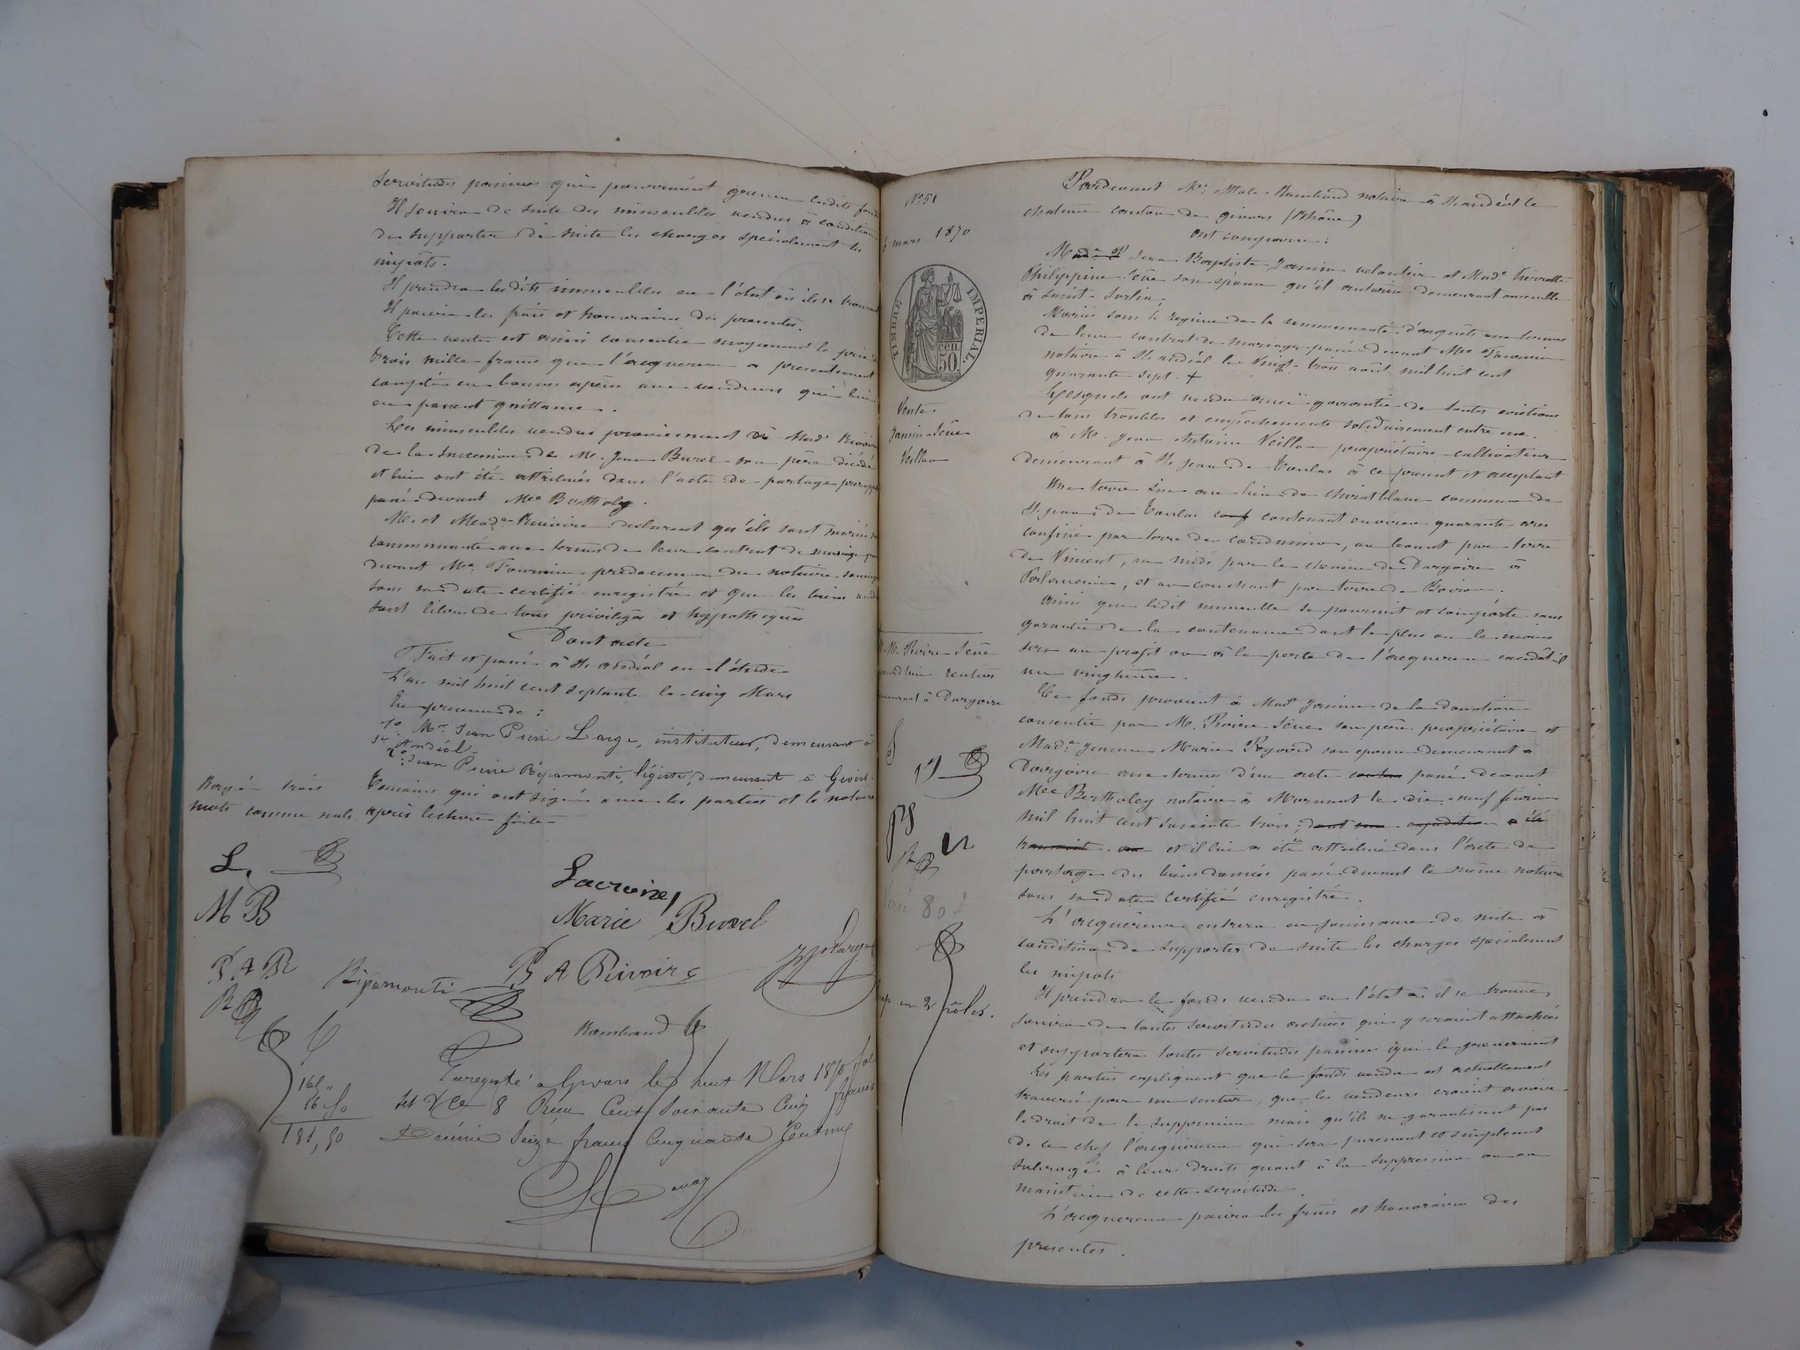 servitudes passives qui pourraient grever lesdits fonds
Il jouira de suite des immeubles vendus à condition
de supporter de suite les charges spécialement les
impôts.
Il prendra lesdits immeubles en l'état où ils se trouvent
Il paiera les frais et honoraires des présentes.
Cette vente est ainsi consentie moyennant le prix de
trois mille francs que l'acquereur a présentement
compté en bonnes espèces aux vendeurs qui lui
en passent quittance.
Les immeubles vendus proviennent à Mad. Rivoire
de la succession de M. Jean Burel son père décédé
et lui ont été attribués dans l'acte de partage
passé devant Me Bertholey.
M. et Mad.e Rivoire déclarent qu'ils sont mariés
communauté aux termes de leur contrat de mariage
devant Me Fournier prédécesseur du notaire
sous sa date certifié enregistré et que les biens
sont libres de tous privilèges et hypothèques
Dont acte
Fait et passé à St Andéol en l'étude
L'an mil huit cent septante le cinq Mars
En présence de :
1o Mr Jean Pierre Large, instituteur, demeurant à
St Andéol
2o Jean Pierre Ripamonti, légiste, demeurant à Givors.
Témoins qui ont signé avec les parties et le notaire
après lecture faite
Rayé trois
mots comme nuls.
L.
M B
P. A R
Lacroix
Marie Burel
P A Rivoire
Ripamonti
JP Large
Rambaud
165 "
16,50
181,50
Enregistré à Givors le huit Mars 1870 fol
Reçu Cent Soixante Cinq francs
Décime Seize francs Cinquante Centimes
No 51
mars 1870
TIMBRE IMPERIAL
50 cen
Vente
Jamin Sève
Veillon
M. Rivière Sève
rentier
demeurant à Dargoire
80 f
en 2 rôles.
Pardevant Me Rambaud notaire à St Andéol le
château canton de givors (Rhône)
ont comparu :
M Jean Baptiste Jamin veloutier et Made Pierrette
Philippine Sève son épouse qu'il autorise demeurant ensemble
à Saint-Sorlin.
Mariés sous le régime de la communauté d'acquêts aux termes
de leur contrat de mariage passé devant Me Fournier
notaire à St Andéol le vingt-trois août mil huit cent
quarante sept +
Lesquels ont vendu avec garantie de toutes évictions
de tous troubles et empêchements solidairement entre eux.
à M. Jean Antoine Veillon propriétaire-cultivateur
demeurant à St Jean de Toulas à ce présent et acceptant
Une terre sise au lieu de commune de
St Jean de Toulas contenant environ quarante ares
confiné par terre de au levant par terre
de Vincent, au midi par le chemin de Dargoire à
et au couchant par terre de
Ainsi que ledit immeuble se poursuit et comporte sans
garantie de la contenance dont le plus ou le moins
sera au profit ou à la perte de l'acquereur excédât-il
un vingtième.
Ce fonds provient à Mad. Jamin de la donation
consentie par M. Rivière Sève son père propriétaire et
Made Jeanne Marie son épouse demeurant à
Dargoire aux termes d'un acte passé devant
Me Bertholey notaire à Mornant le dix-neuf février
mil huit cent soixante trois; dont une expédition a été
et il lui a été attribué dans l'acte de
partage des biens donnés passé devant le même notaire
sous sa date certifié enregistré.
L'acquéreur entrera en jouissance de suite à
condition de supporter de suite les charges spécialement
les impôts
Il prendra le fonds vendu en l'état où il se trouve,
jouira de toutes servitudes actives qui y seraient attachées
et supportera toutes servitudes passives qui le grèveraient
Les parties expliquent que le fonds vendu est actuellement
traversé par un sentier, que les vendeurs croient avoir
le droit de le supprimer mais qu'ils ne garantissent pas
de ce chef l'acquéreur qui sera purement et simplement
subrogé à leurs droits quant à la suppression ou au
maintien de cette servitude.
L'acquereur paiera les frais et honoraires des
présentes.